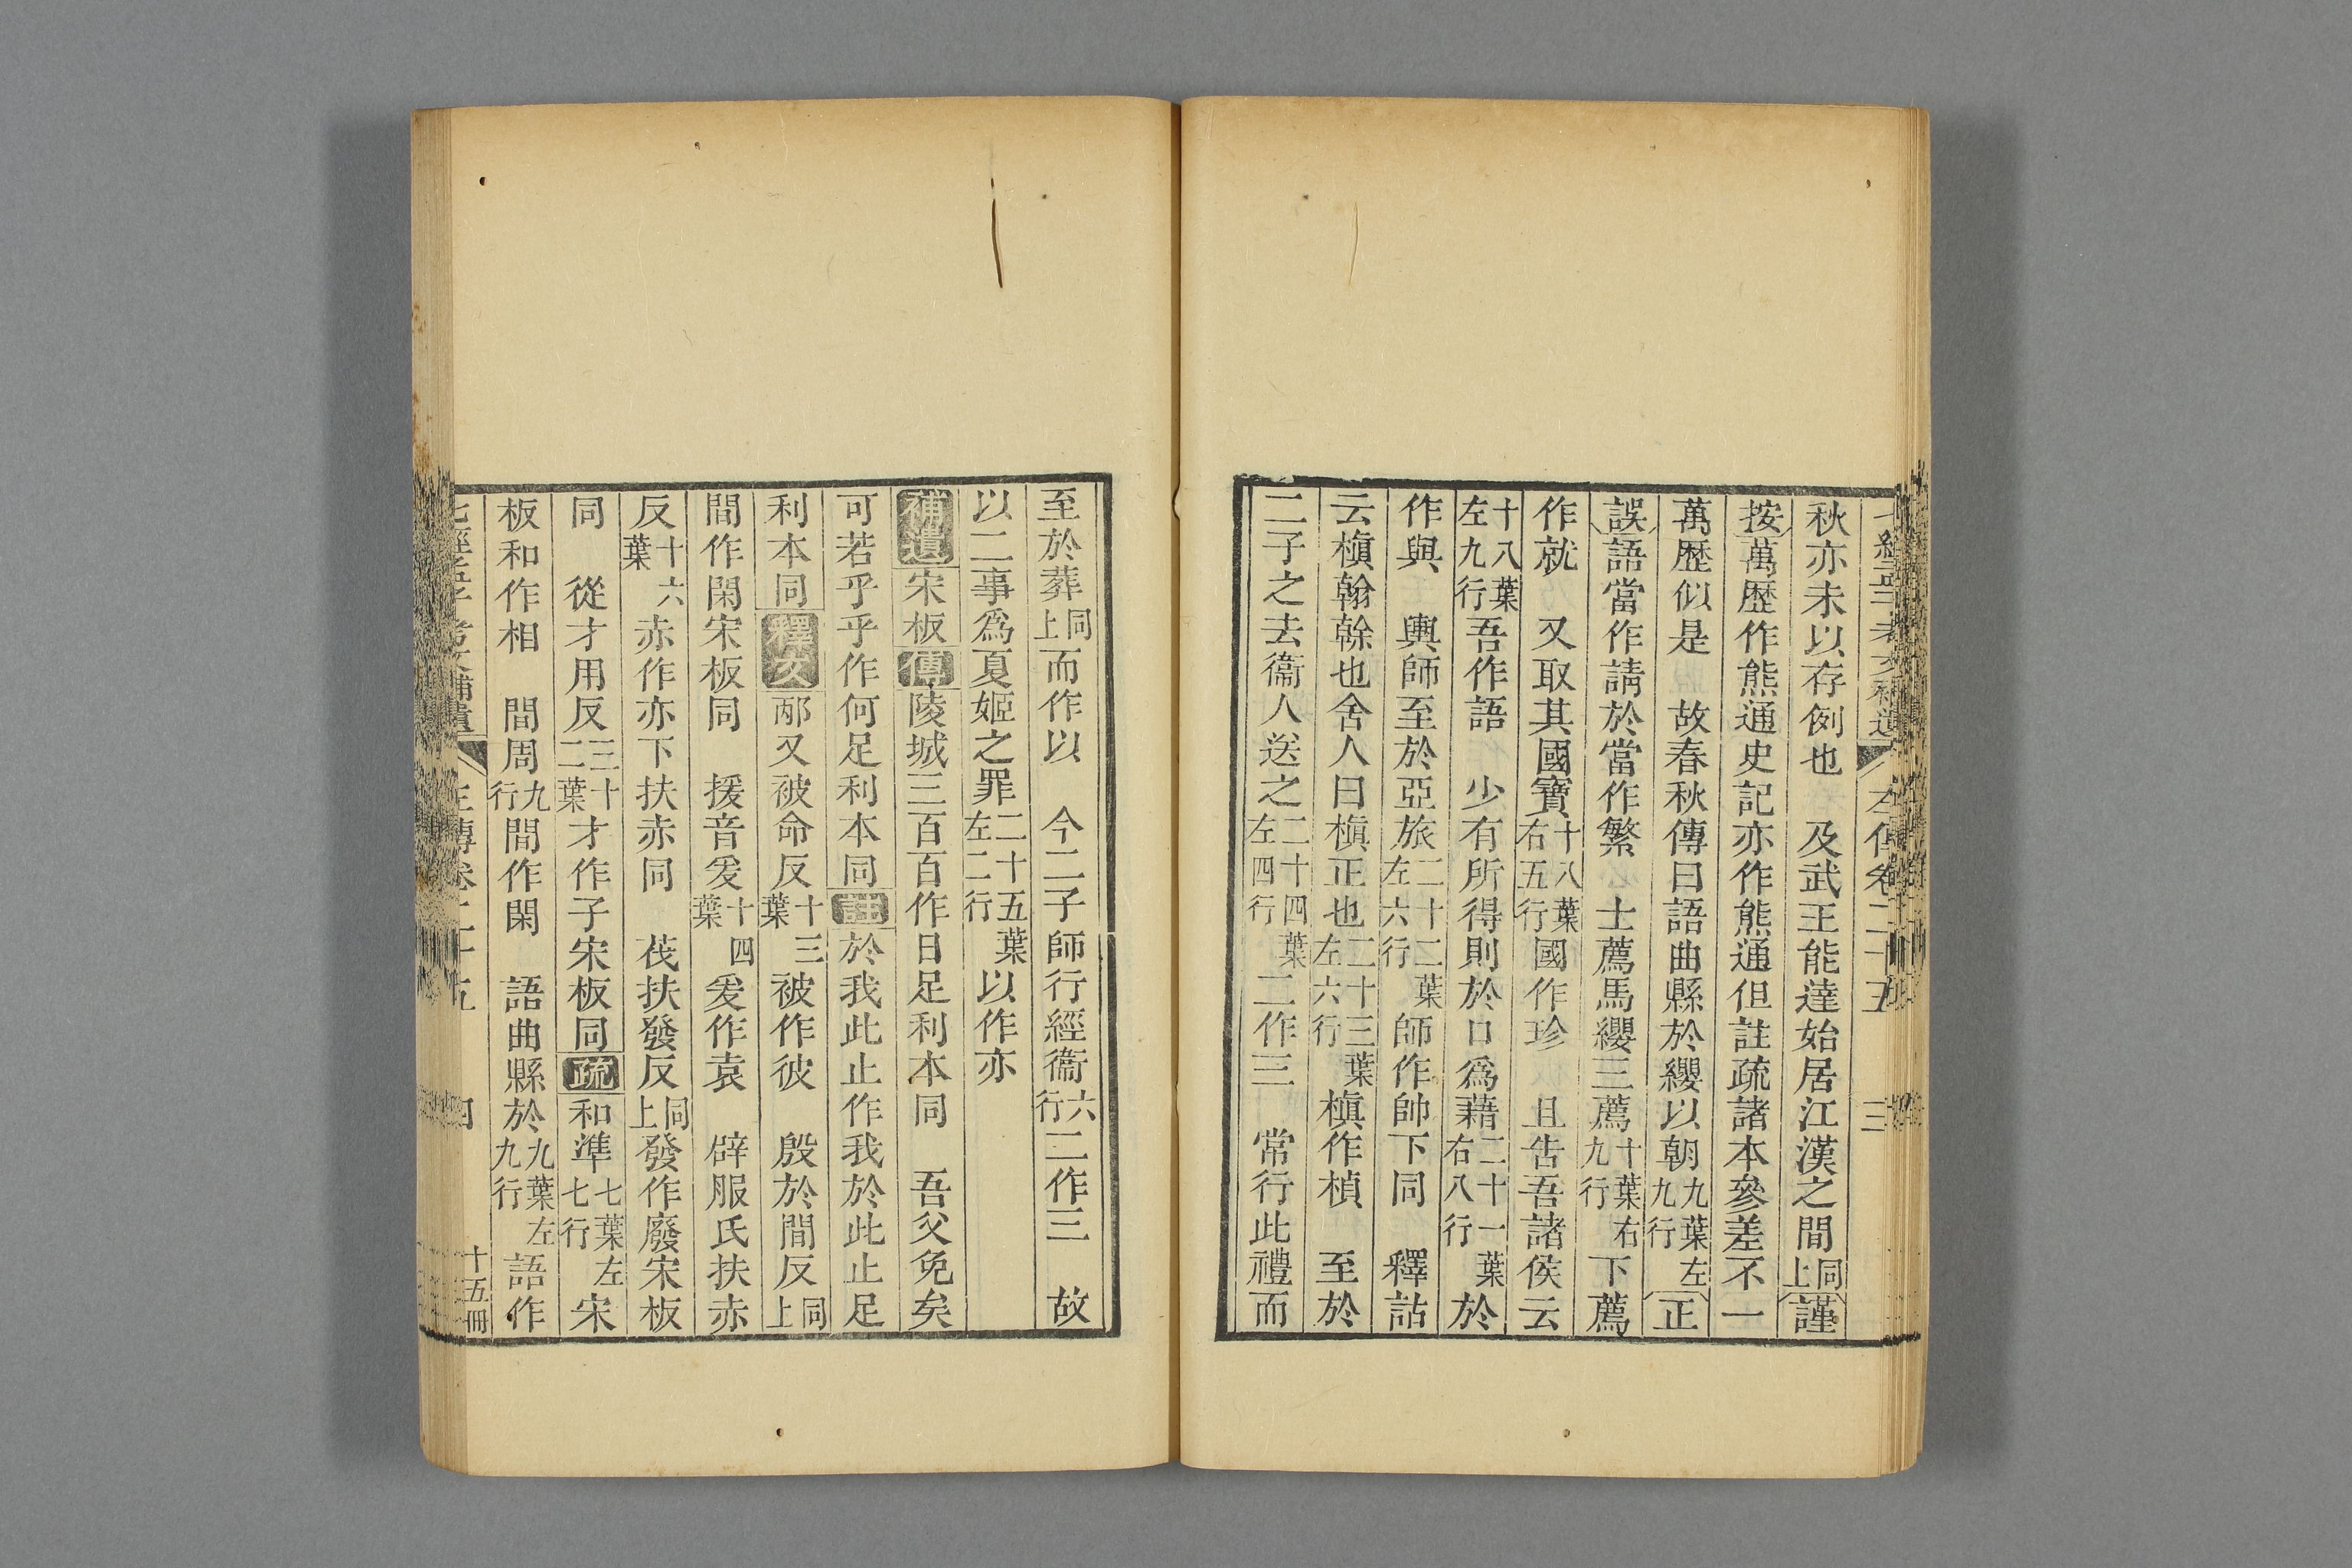 秋亦未以存例也　及武王能達始居江漢之間同上謹
按萬歷作熊通史記亦作熊通但註疏諸本參差不一
萬歷似是　故春秋傳曰語曲縣於纓以朝九葉左九行正
誤語當作請於當作繁　士薦馬纓三薦十葉右九行下薦
作就　又取其國寶十八葉右五行國作珍　且告吾諸侯云
十八葉左九行吾作語　少有所得則於口爲藉二十一葉右八行於
作與　輿師至於亞旅二十二葉左六行師作帥下同　釋詁
云楨翰榦也舍人曰楨正也二十三葉左六行楨作楨　至於
二子之去衞人送之二十四葉左四行二作三　常行此禮而
至於葬同上而作以　今二子師行經衞六行二作三　故
以二事爲夏姬之罪二十五葉左二行以作亦
補遺宋板傳陵城三百百作日足利本同　吾父免矣
可若乎乎作何足利本同註於我此止作我於此止足
利本同釋文邴又被命反十三葉被作彼　殷於間反同上
間作閑宋板同　援音爰十四葉爰作袁　辟服氏扶赤
反十六葉赤作亦下扶赤同　茷扶發反同上發作廢宋板
同　從才用反三十二葉才作子宋板同疏和準七葉左七行宋
板和作相　間周九行間作閑　語曲縣於九葉左九行語作
左傳卷二十五　四　十五冊